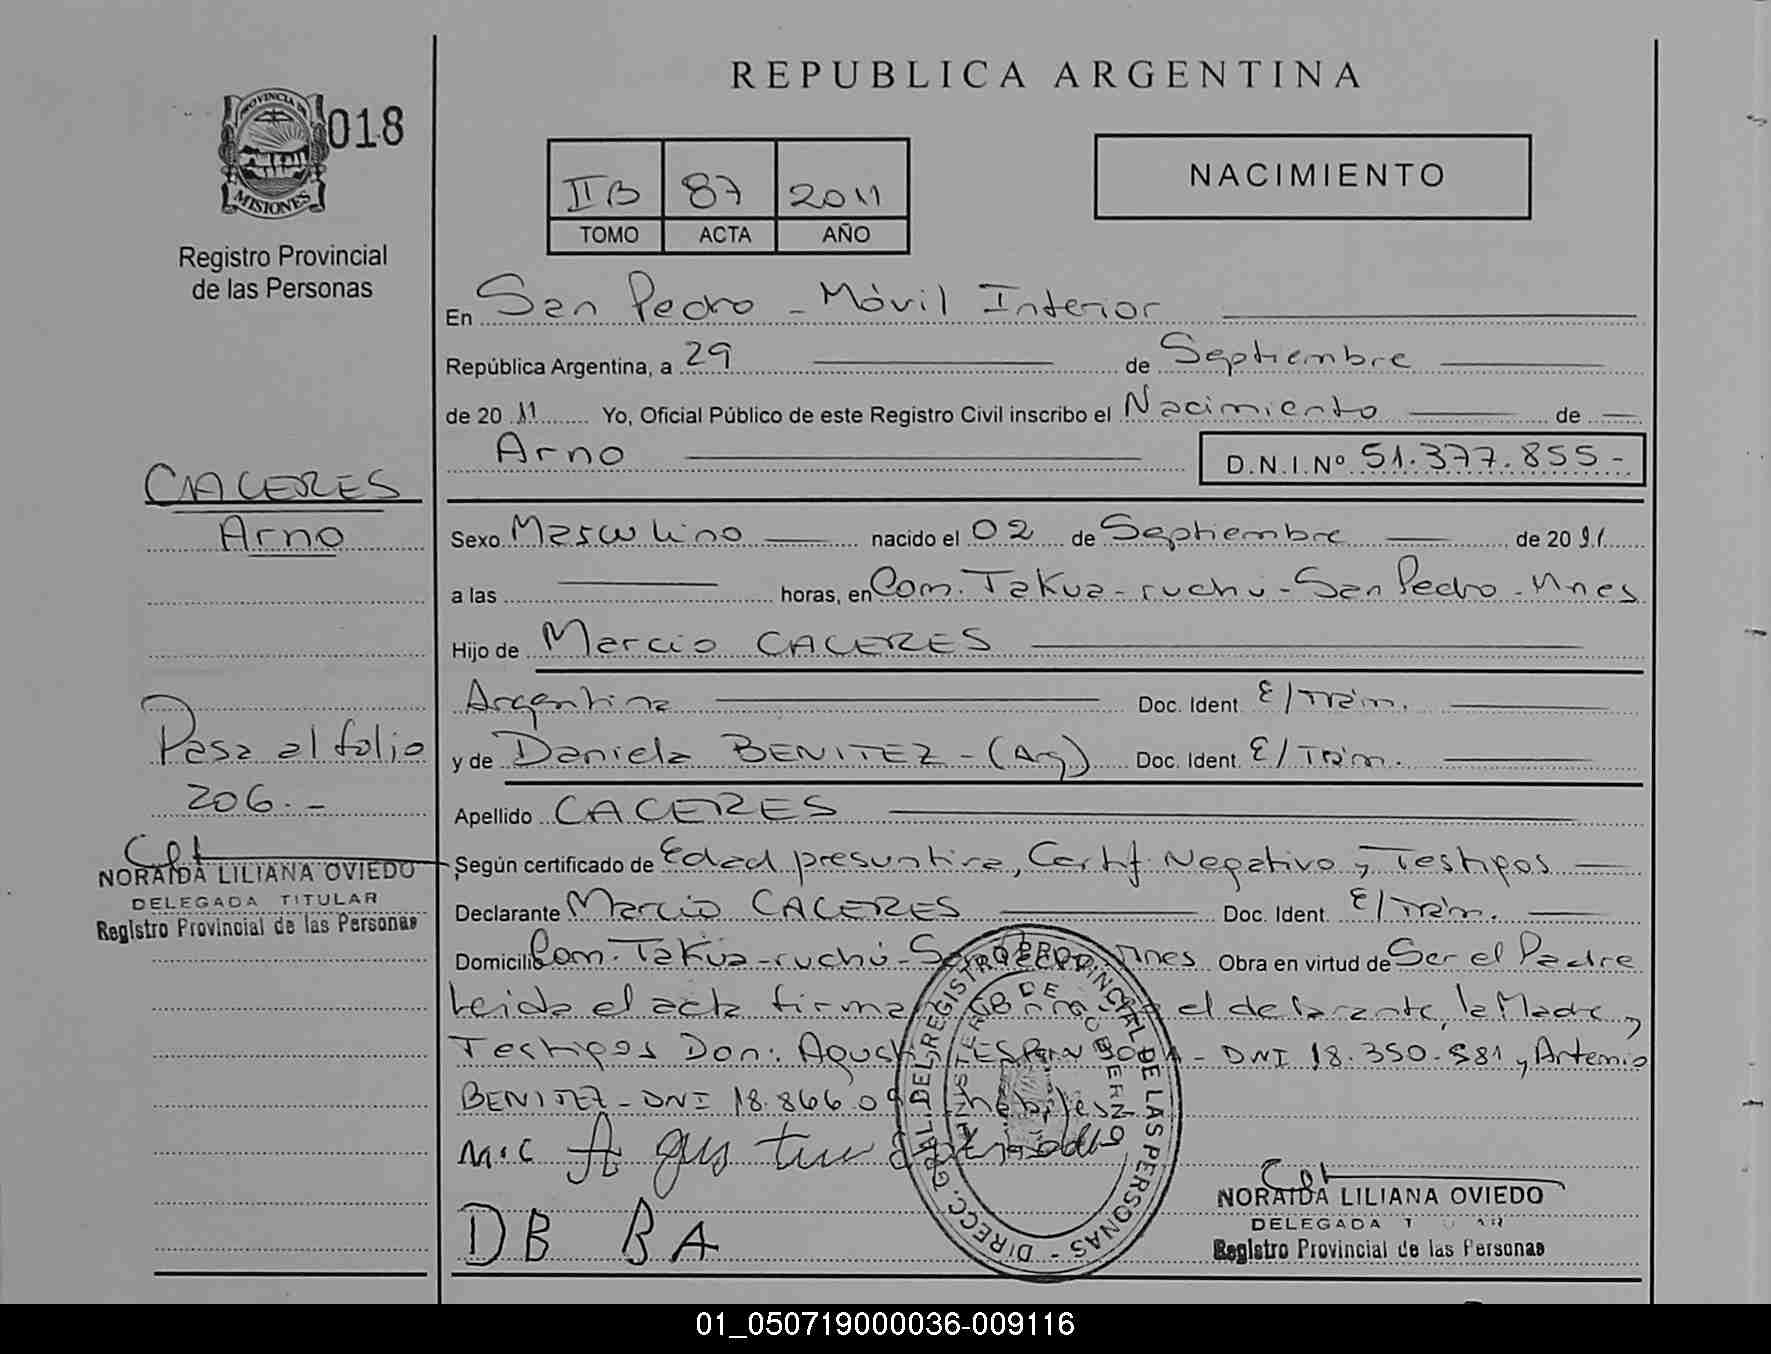 REPUBLICA ARGENTINA
PROVINCIA DE
MISIONES
018
Registro Provincial
de las Personas
IIB 87 2011
TOMO ACTA AÑO
NACIMIENTO
En San Pedro - Móvil Interior
República Argentina, a 29 de Septiembre
de 20 11 Yo, Oficial Público de este Registro Civil inscribo el Nacimiento de
Arno
D.N.I.Nº 51.377.855-
CACERES
Arno
Sexo Masculino nacido el 02 de Septiembre de 20 11
a las horas, en Com. Takua-ruchú - San Pedro - Mnes
Hijo de Marcio CACERES
Argentina Doc. Ident. E/Trám.
y de Daniela BENITEZ - (Arg) Doc. Ident. E/Trám.
Apellido CACERES
Según certificado de Edad presuntiva, Certif. Negativo y Testigos
Declarante Marcio CACERES Doc. Ident. E/Trám.
Domicilio Com. Takua-ruchú - San Pedro Mnes Obra en virtud de Ser el Padre
Leida el acta firma el declarante, la Madre y
Testigos Don: Agustin - DNI 18.350.581 y Artemio
BENITEZ - DNI 18.866.09 habiles
M.C Agustin
DB BA
Pasa al folio
206.-
NORAIDA LILIANA OVIEDO
DELEGADA TITULAR
Registro Provincial de las Personas
DIRECC. GRAL. DEL REGISTRO PROVINCIAL DE LAS PERSONAS
MINISTERIO DE GOBIERNO
NORAIDA LILIANA OVIEDO
DELEGADA
Registro Provincial de las Personas
01_050719000036-009116